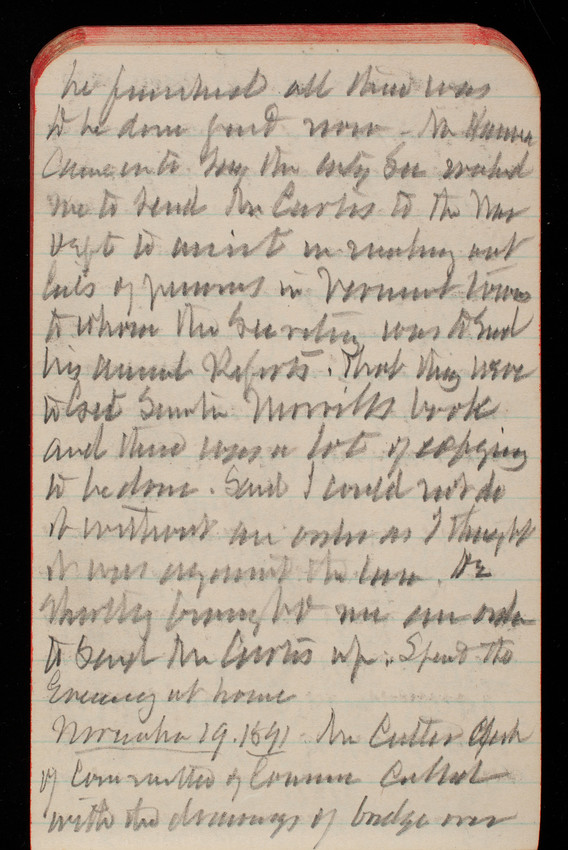 he finished all there was
to be done just now - Mr Hanna
Came in to say the Actg Sec wished
me to send Mr Curtis to the War
Dept to assist in making out
lists of persons in Vermont towns
to whom the Secretary was to send
his annual Reports. That they were
to get Senator Morrills book
and there was a lot of copying
to be done. Said I could not do
it without an order as I thought
it was against the law. He
shortly brought me an order
to send Mr Curtis up. Spent the
Evening at home
November 19. 1891 Mr Cutter Clerk
of Committee of Commerce Called
with the drawings of bridge over